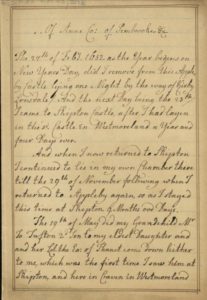 Of Anne Co: of Pembroke &c
The 24th of Feb: 1652 as the Year begins on
New Years Day, did I remove from this Apple-
by Castle lying one Night by the way at Kirby
And the next Day being the 25th
I came to Skipton Castle, after I had layen
in the Castle in Westmorland a Year and
four Days over.
And when I now returned to Skipton
I continued to lie in my own Chamber there
till the 20th of November following when I
returned to Appleby again, so as I stayed
this time at Skipton 8 Months and Days.
The 19th of May did my Grandchild Mr
Tufton 2d Son to my eldest Daughter and
and her Ld the Ea: of Thanet come down hither
to me, which was the first time I saw him at
Skipton, and here in Craven in Westmorland